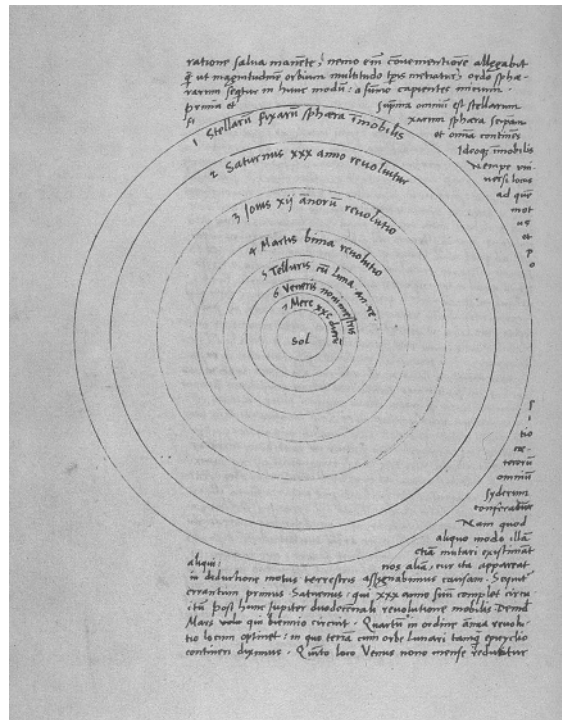 ratione salua manēte, nemo em̄ cōuenientiorē allegabit
q̄ ut magnitudinē orbium multitudo tp̄is metiatur, ordo sphæ-
rarum seqtur in hunc modū: a sūmo capientes initium.
prima et suprema omniū est stellarum
fi xarum sphæra seipsam
et omnia continēs
Ideoqz īmobilis
nempe uni
uersi locus
ad quē
mot
us
et
po
1 Stellarū fixarū sphæra īmobilis
2 Saturnus xxx anno reuoluitur
3 Iouis xij annorū reuolutio
4 Martis bima reuolutio
5 Telluris cū luna an. re.
6 Veneris nonimestris
7 Merc xxc dierū
Sol
si
tio
cæ-
terorū
omniū
syderum
conferatur
Nam quod
aliquo modo illā
etiā mutari existimāt
aliqui: nos aliā, cur ita appareat
in deductione motus terrestris assignabimus causam. Sequit
errantium primus Saturnus: qui xxx anno suū complet circu-
itū Post hunc Iupiter duodecēnali reuolutione mobilis Deinde
Mars qui biennio circuit. Quartū in ordine annua reuolu-
tio locum optinet: in quo terrā cum orbe lunari tamq̄ epicyclo
contineri diximus. Quīto loco Venus nono mense reducitur